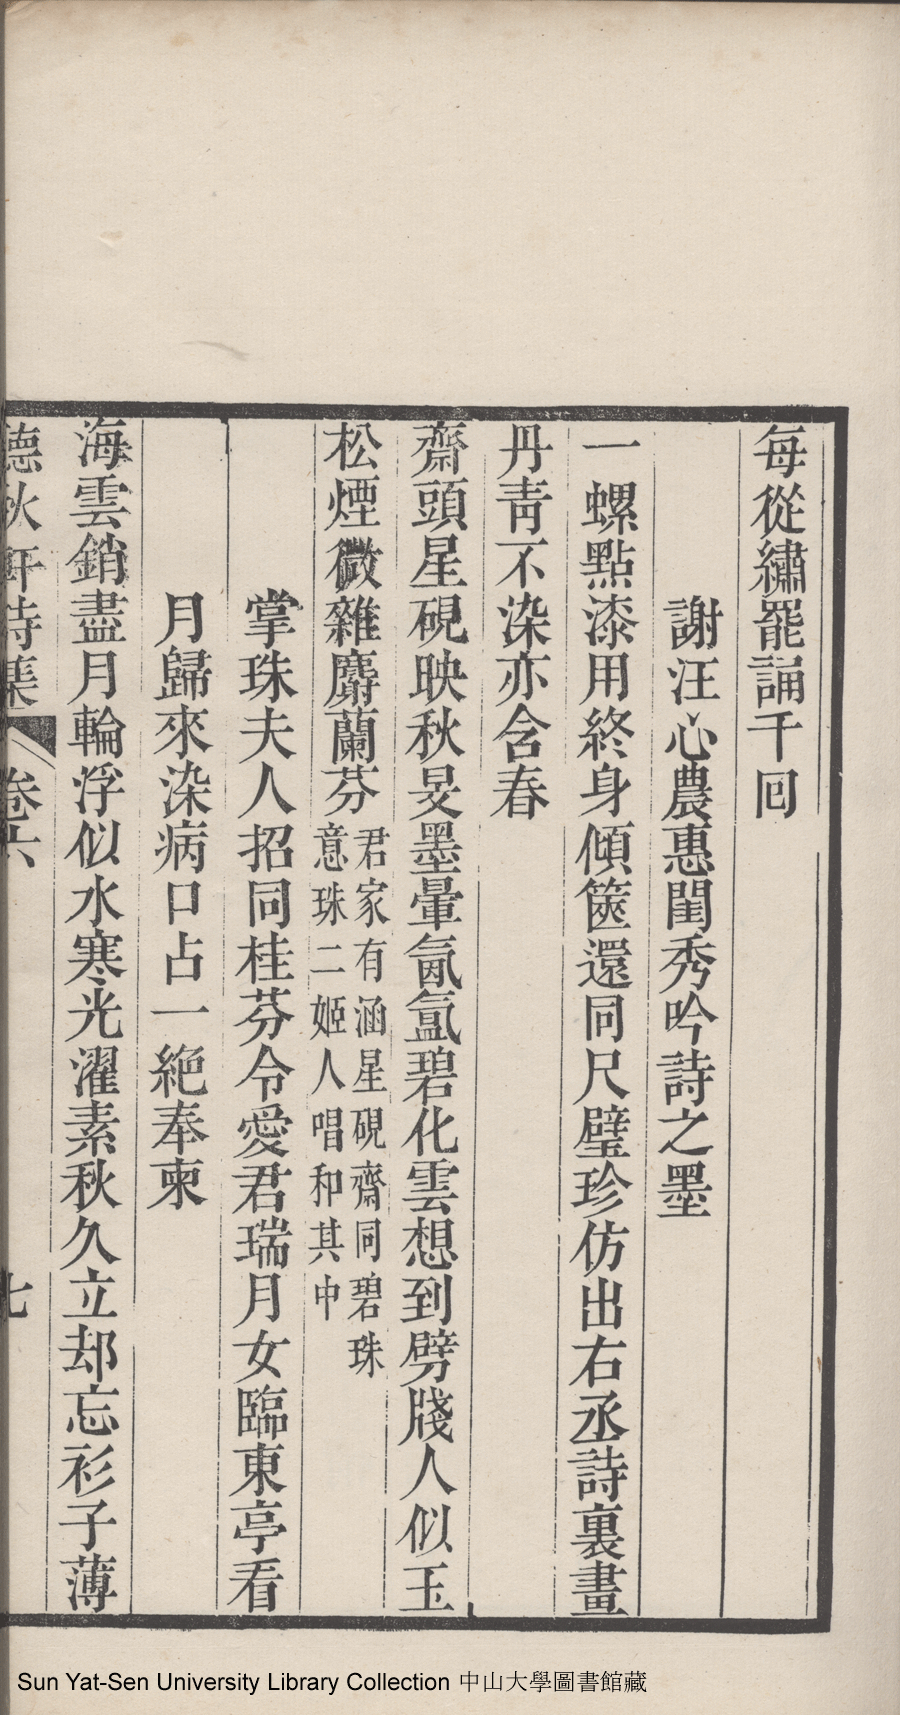 每從繡罷誦千回
謝汪心農惠閨秀吟詩之墨
一螺點漆用終身傾篋還同尺璧珍仿出右丞詩裏畫
丹青不染亦含春
齋頭星硯映秋旻墨暈氤氳碧化雲想到劈牋人似玉
松煙微雜麝蘭芬
君家有涵星硯齋同碧珠
意珠二姬人唱和其中
掌珠夫人招同桂芬令愛君瑞月女臨東亭看
月歸來染病口占一絕奉柬
海雲銷盡月輪浮似水寒光濯素秋久立却忘衫子薄
德秋軒詩集
卷六
七
Sun Yat-Sen University Library Collection 中山大學圖書館藏